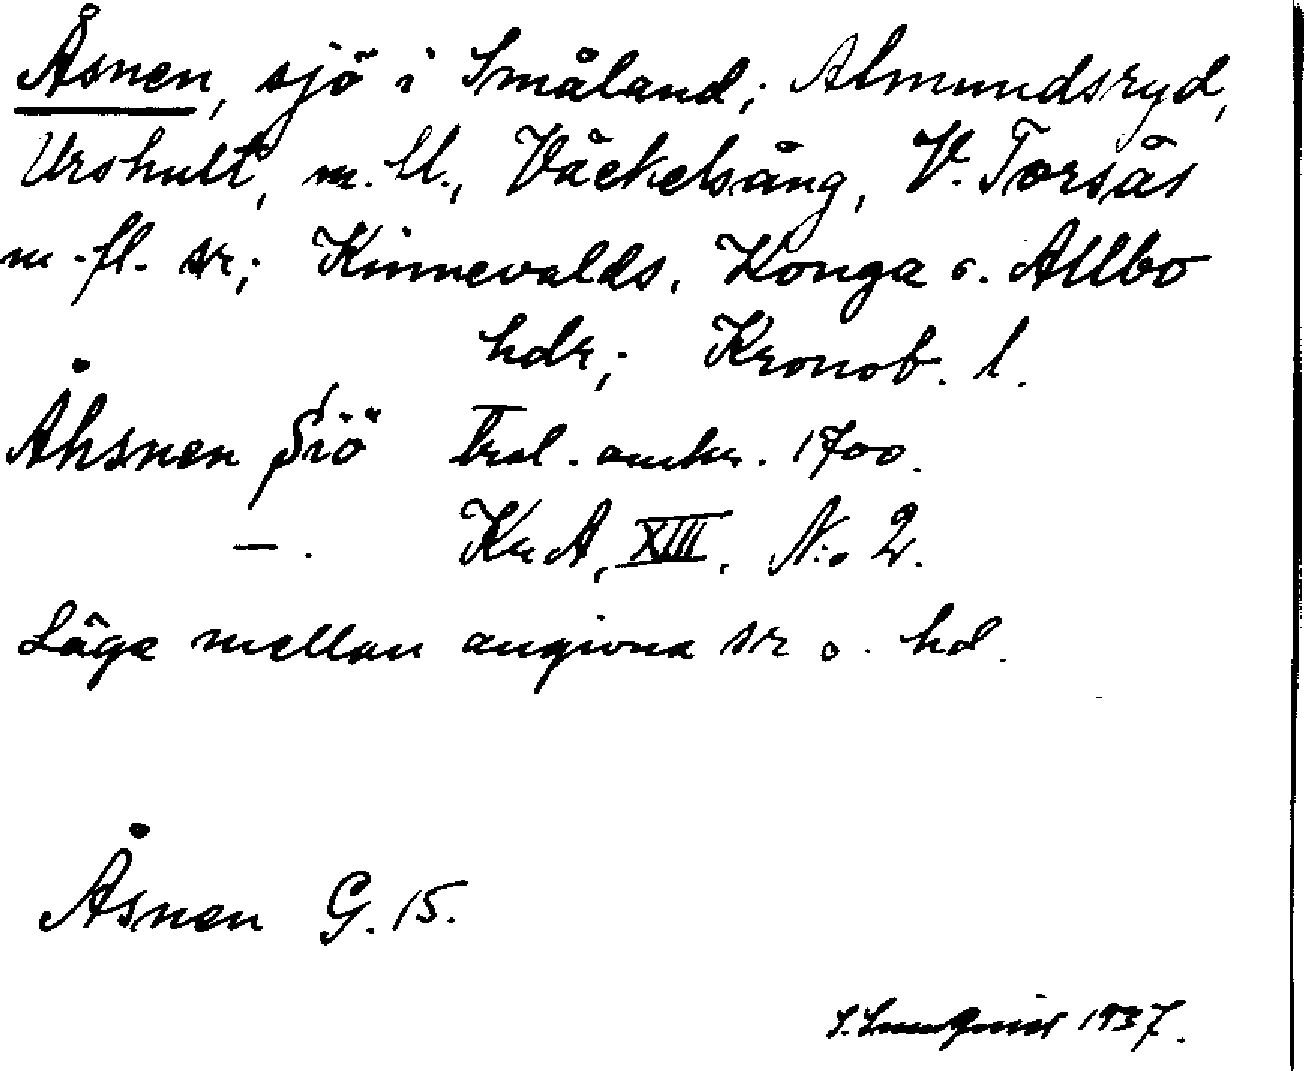 Åsnen, sjö i Småland; Almundsryd,
Urshult, m. fl., Väckelsång, V. Torsås
m. fl. sr; Kinnevalds, Konga o. Allbo
hdr; Kronob. l.
Åhsnen Siö Trol. omkr. 1700.
— . KrA, XIII, N:o 2.
Läge mellan angivna sr o. hd.
Åsnen G. 15.
1937.